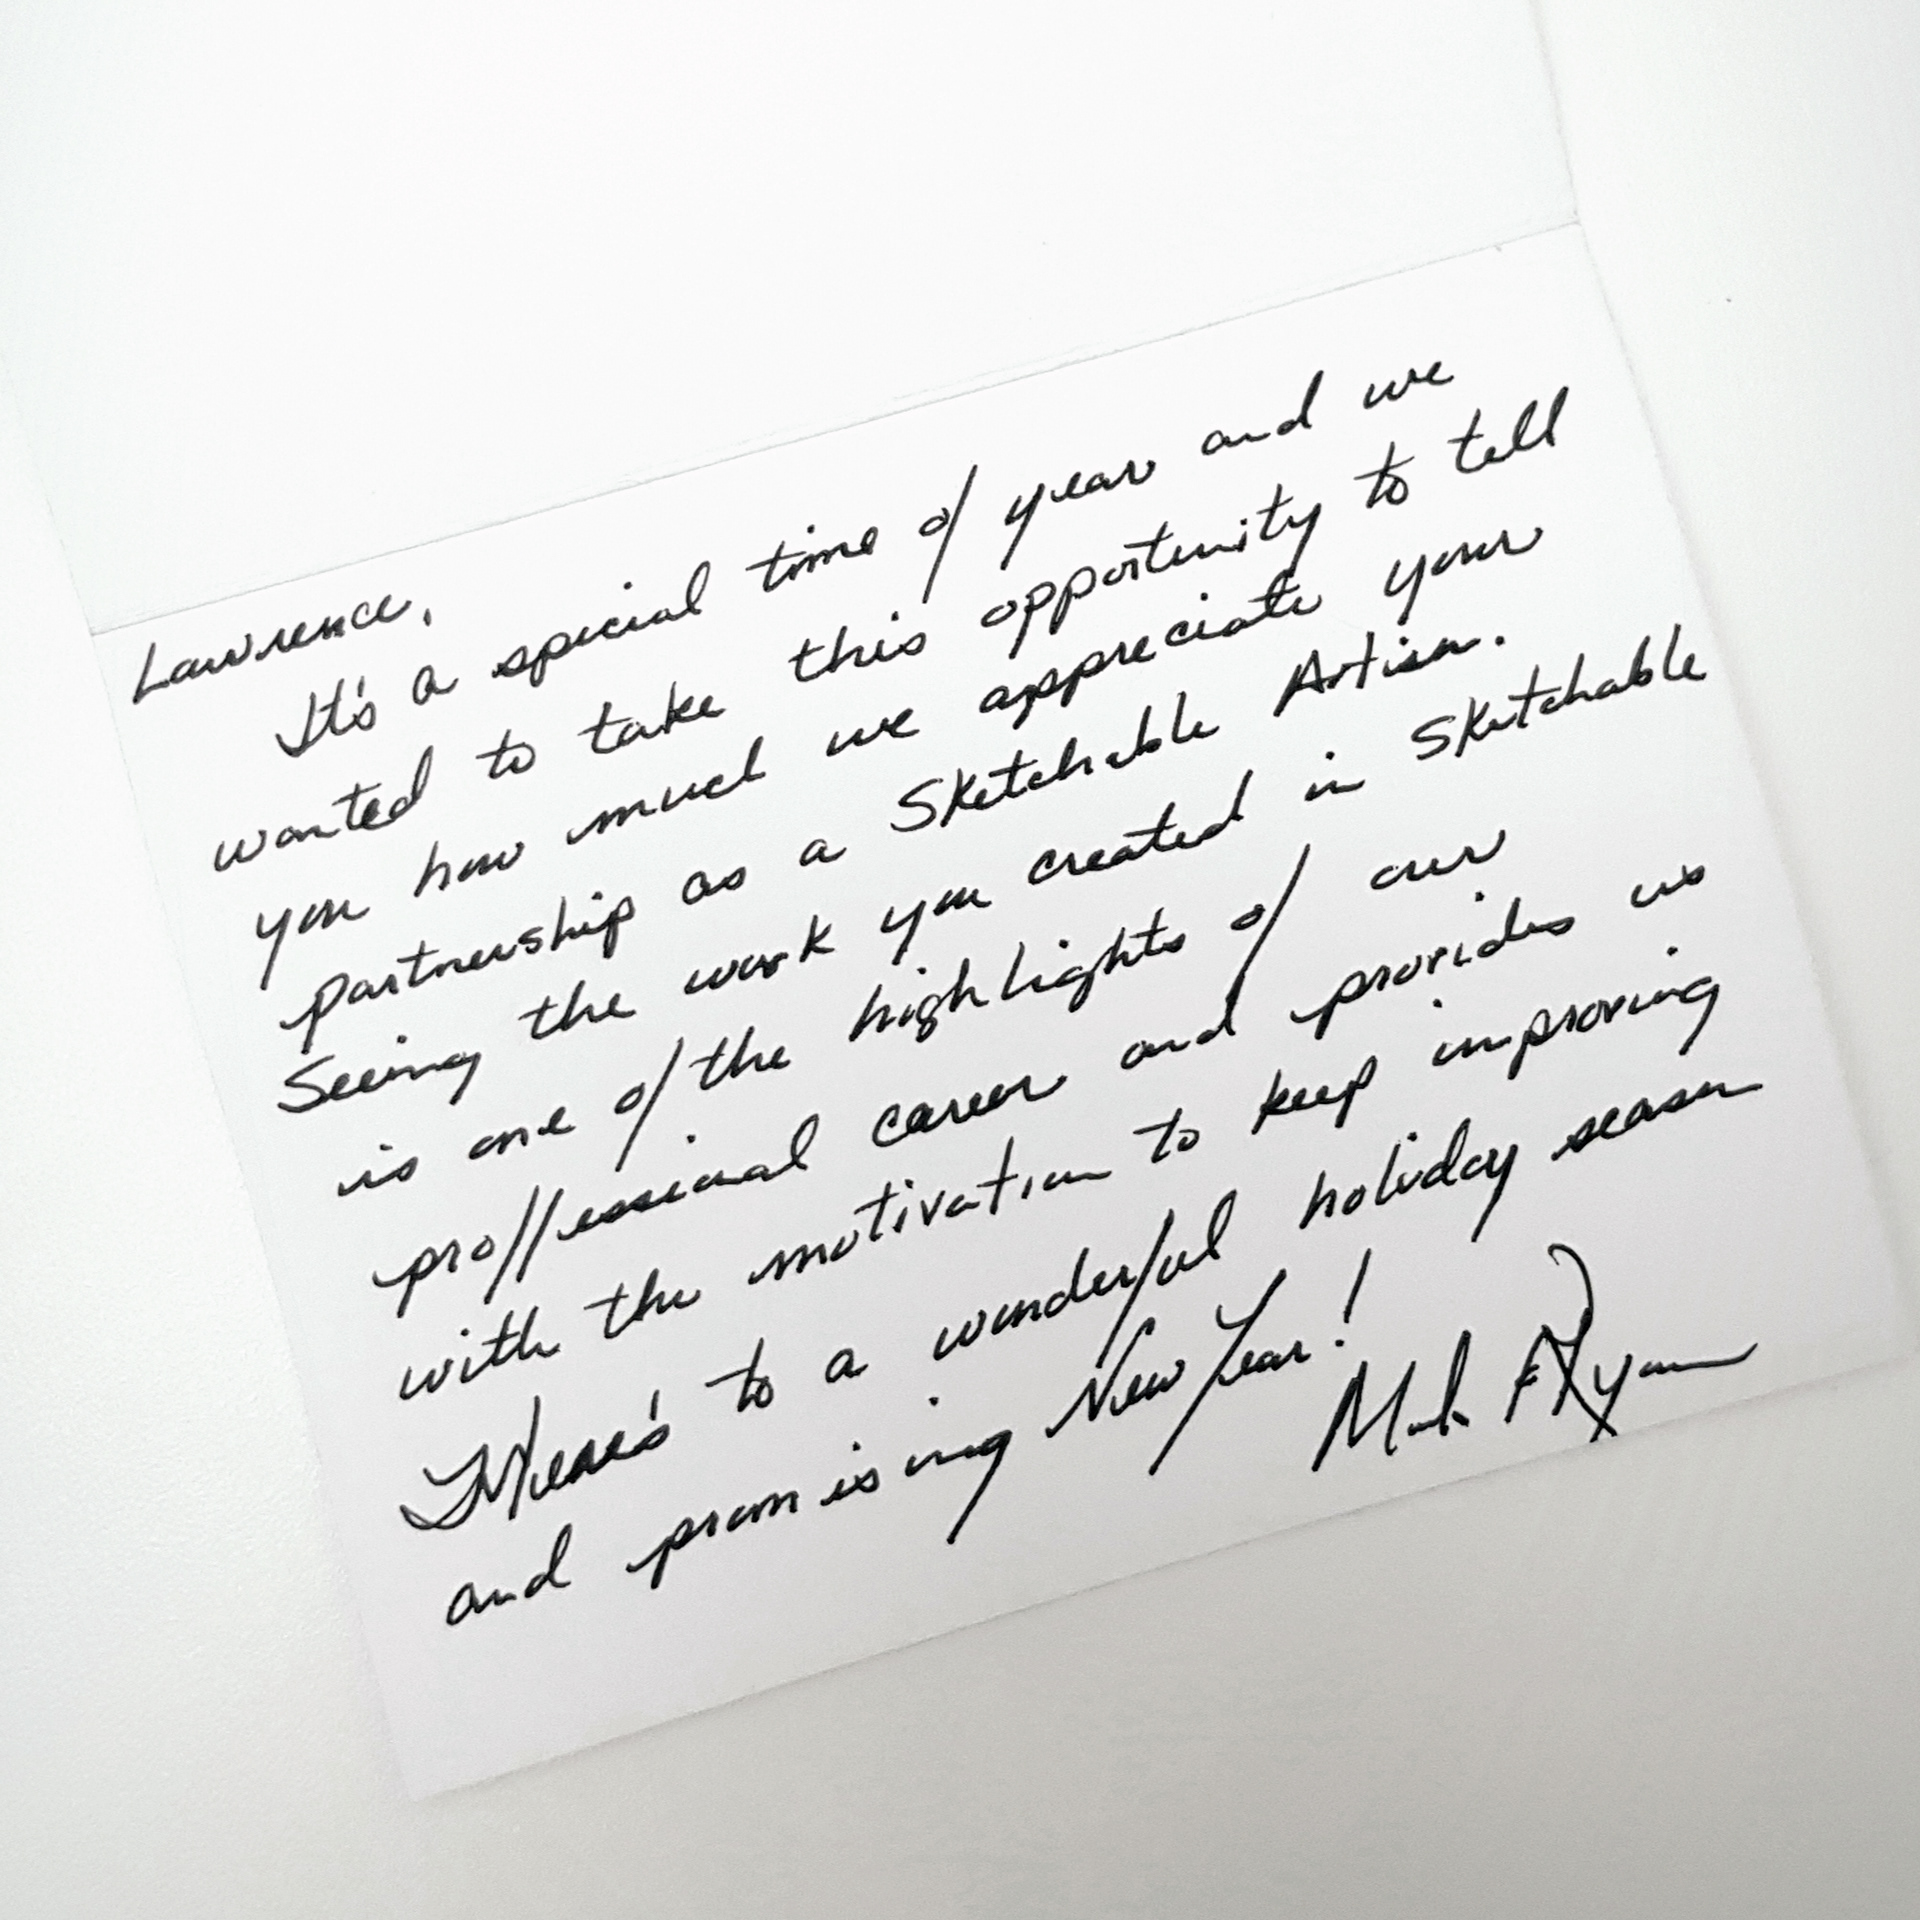 Lawrence,
It's a special time of year and we
wanted to take this opportunity to tell
you how much we appreciate your
partnership as a Sketchable Artisan.
Seeing the work you created in Sketchable
is one of the highlights of our
proffessional career and provides us
with the motivation to keep improving
Here's to a wonderful holiday season
and promising New Year!